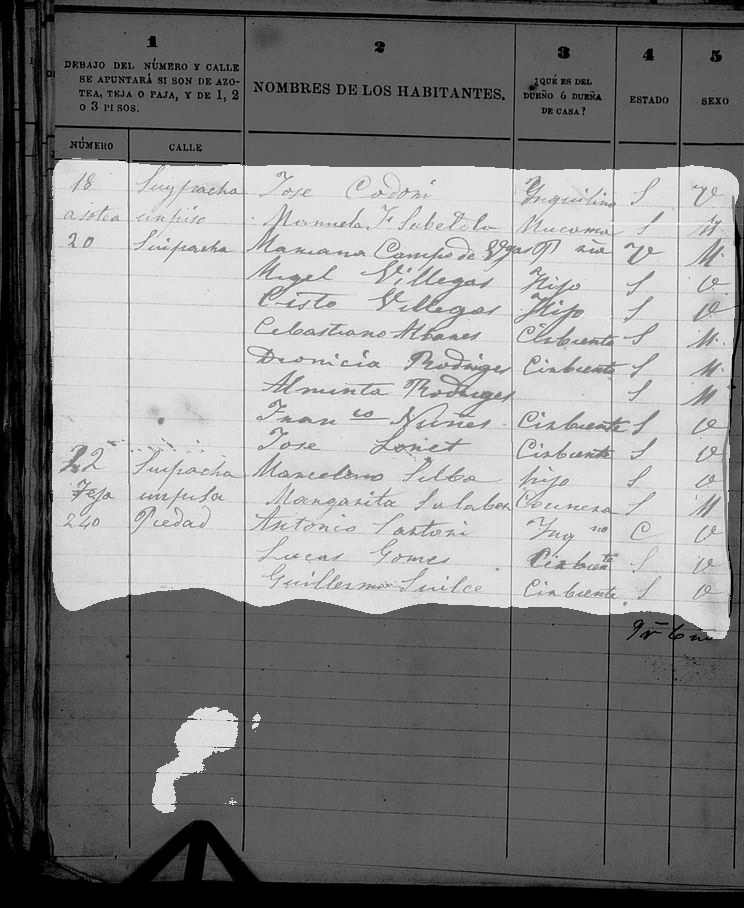 1 2 3 4 5
DEBAJO DEL NÚMERO Y CALLE
SE APUNTARÁ SI SON DE AZO-
TEA, TEJA O PAJA, Y DE 1, 2
O 3 PISOS.
NOMBRES DE LOS HABITANTES.
¿QUÉ ES DEL
DUEÑO Ó DUEÑA
DE CASA?
ESTADO
SEXO
NÚMERO CALLE
18 Suypacha Jose Codoni Ynquilino S V
asotea un piso Manuela F Mucama S M
20 Suipacha Mariana Campo de V M
Migel Villegas Hijo S V
Cisto Villegas Hijo S V
Cebastiano Albanes Cirbiente S M
Dionicia Rodriges Cirbiente S M
Alminta Rodriges S M
Franco Nuñes Cirbiente S V
Jose Cirbiente S V
22 Suipacha Marcelino Silba hijo S V
Teja Margarita Cosinera S M
240 Piedad Antonio Santoni Ynqno C V
Lucas Gomes Cirbiente S V
Guillermo Cirbiente S V